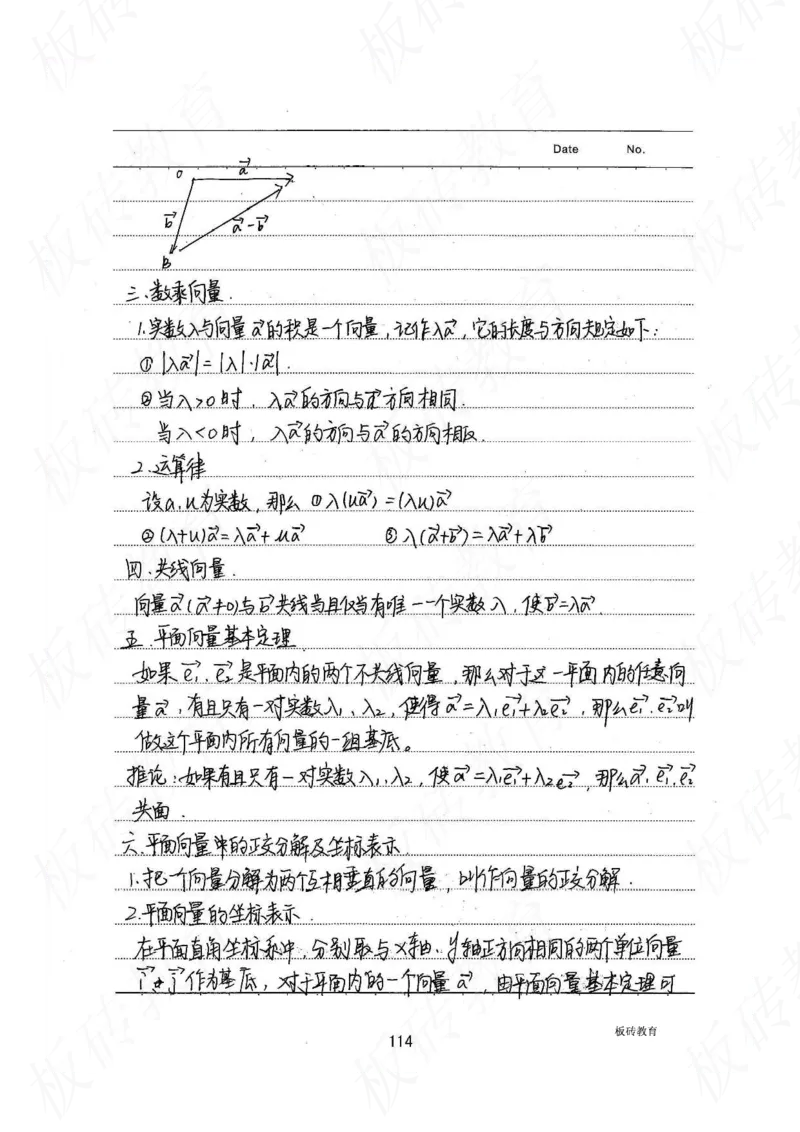 Date No.
O a⃗
b⃗ a⃗-b⃗
B
三、数乘向量.
1.实数λ与向量a⃗的积是一个向量,记作λa⃗,它的长度与方向规定如下:
①|λa⃗|=|λ|·|a⃗|.
②当λ>0时,λa⃗的方向与a⃗方向相同.
当λ<0时,λa⃗的方向与a⃗的方向相反.
2.运算律
设a,u为实数,那么 ①λ(ua⃗)=(λu)a⃗
②(λ+u)a⃗=λa⃗+ua⃗ ③λ(a⃗+b⃗)=λa⃗+λb⃗
四、共线向量.
向量a⃗(a⃗≠0)与b⃗共线当且仅当有唯一一个实数λ,使b⃗=λa⃗.
五.平面向量基本定理
如果e₁⃗、e₂⃗是平面内的两个不共线向量,那么对于这一平面内的任意向
量a⃗,有且只有一对实数λ₁、λ₂,使得a⃗=λ₁e₁⃗+λ₂e₂⃗,那么e₁⃗、e₂⃗叫
做这个平面内所有向量的一组基底。
推论:如果有且只有一对实数λ₁、λ₂,使a⃗=λ₁e₁⃗+λ₂e₂⃗,那么a⃗、e₁⃗、e₂⃗
共面.
六.平面向量中的正交分解及坐标表示.
1.把一个向量分解为两个互相垂直的向量,叫作向量的正交分解.
2.平面向量的坐标表示.
在平面直角坐标系中,分别取与x轴、y轴正方向相同的两个单位向量
i⃗、j⃗作为基底,对于平面内的一个向量a⃗,由平面向量基本定理可
板砖教育
114